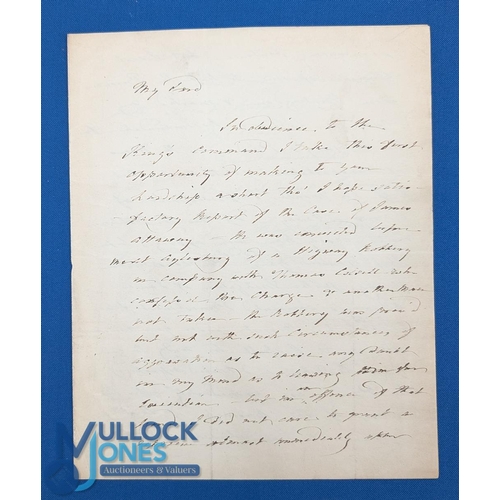 My Lord
In obedience to the
King's Command I take this first
opportunity of making to your
Lordship a short tho' I hope satis-
factory Report of the Case of James
Attaway He was convicted before
me at Aylesbury of a Higway Robbery
in company with Thomas who
confess'd the Charge & another Man
not taken the Robbery was proved
but not with such Circumstances of
aggravation as to raise any doubt
in my mind as to leaving him for
Execution but in of that
I did not care to grant a
almost immediately upon
MULLOCK
JONES
Auctioneers & Valuers